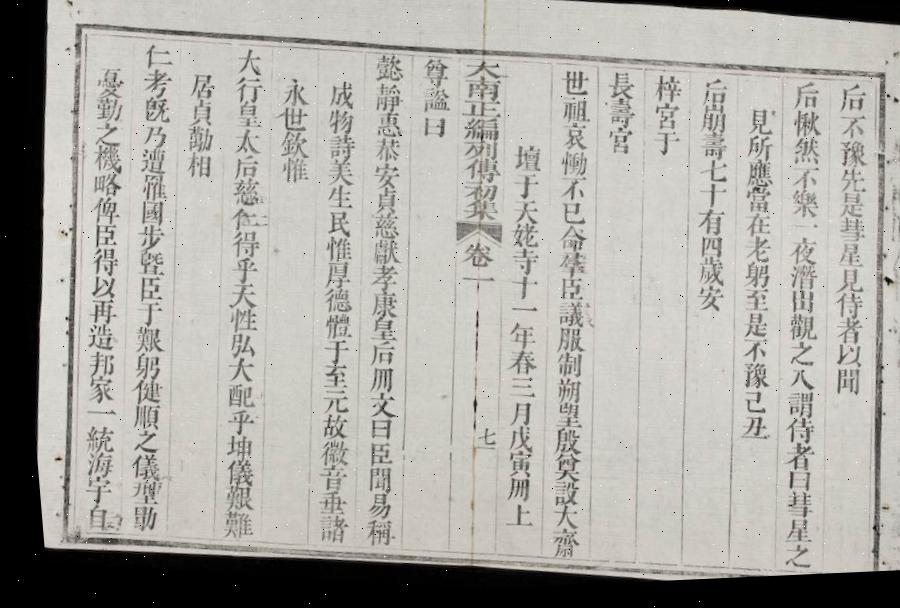 后不豫先是彗星見侍者以聞
后愀然不樂一夜潛出觀之入謂侍者曰彗星之
見所應當在老躬至是不豫己丑
后崩壽七十有四歲安
梓宮于
長壽宮
世祖哀慟不已命羣臣議服制朔望殷奠設大齋
壇于天姥寺十一年春三月戊寅冊上
大南正編列傳初集 卷一 七
尊謚曰
懿靜惠恭安貞慈獻孝康皇后冊文曰臣聞易稱
成物詩美生民惟厚德體于至元故徽音垂諸
永世欽惟
大行皇太后慈仁得乎天性弘大配乎坤儀艱難
居貞勤相
仁考旣乃遭罹國步曁臣于艱躬健順之儀型勤
憂勤之機略俾臣得以再造邦家一統海宇自